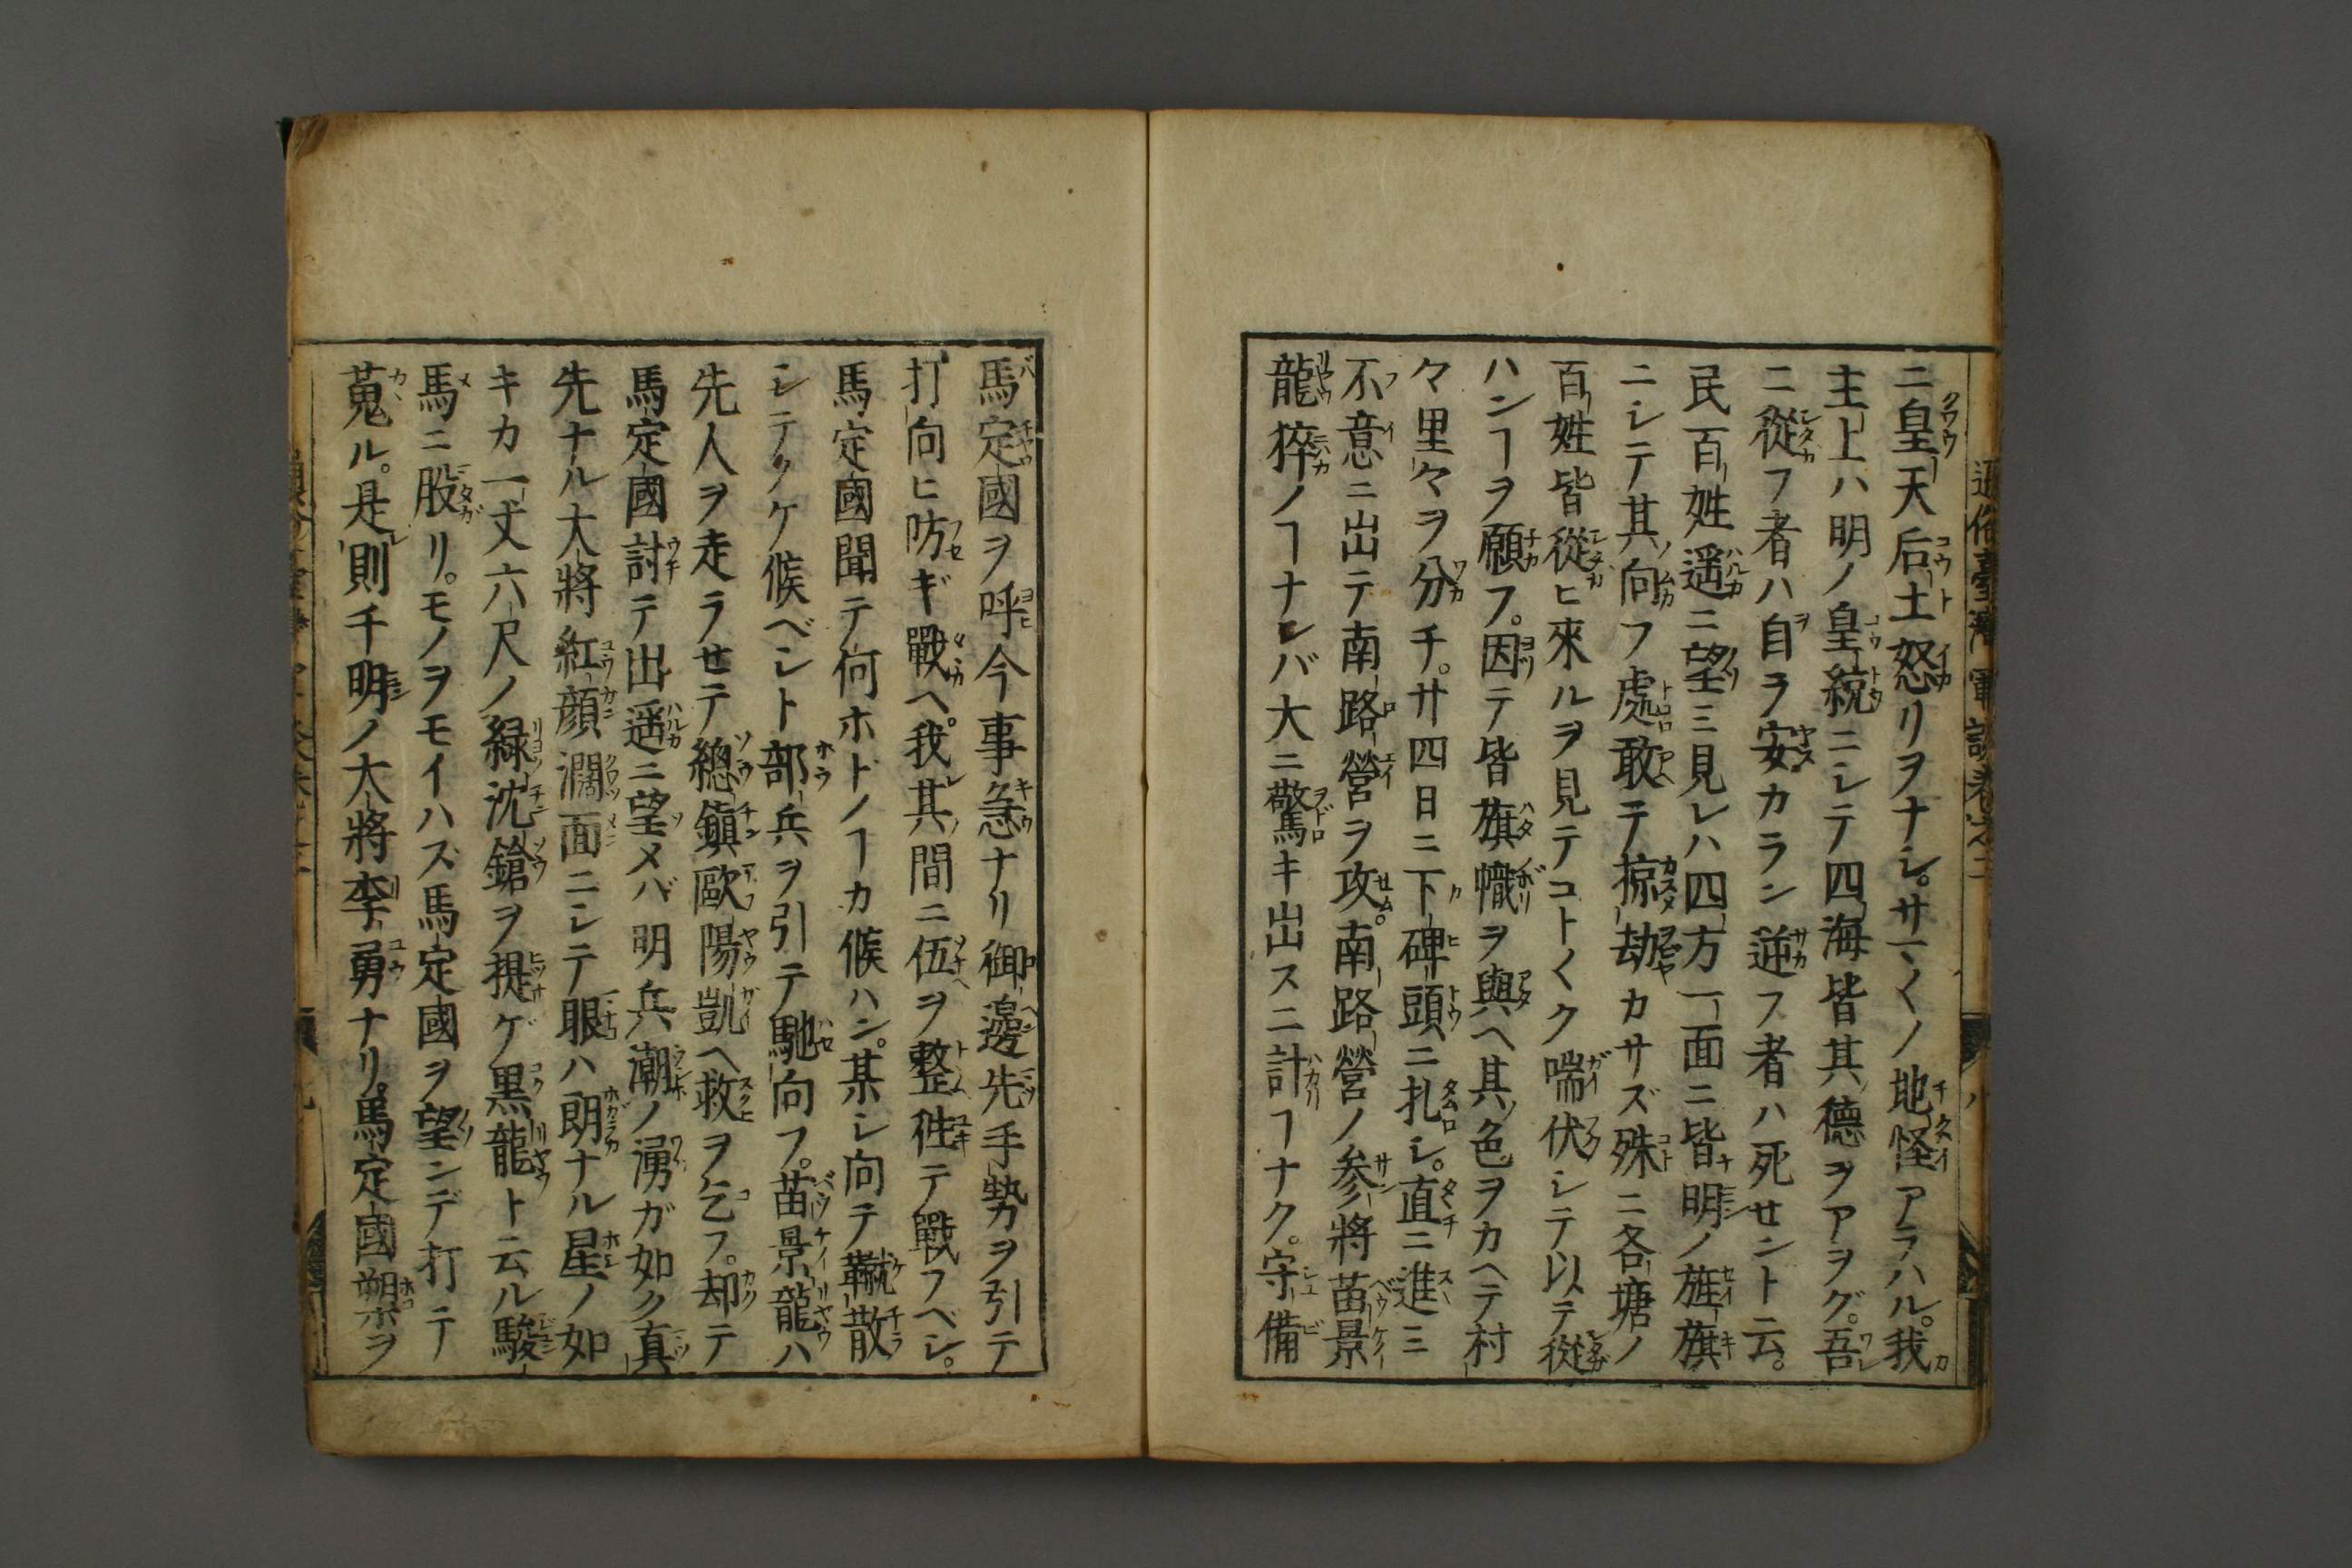 ニ皇天后土怒リヲナシ。サマ〱ノ地怪アラハル。我
主上ハ明ノ皇統ニシテ四海皆其德ヲアヲグ。吾
ニ從フ者ハ自ラ安カラン逆フ者ハ死セント云。
民百姓遥ニ望ミ見レハ四方一面ニ皆明ノ旌旗
ニシテ其向フ處敢テ掠劫カサズ殊ニ各塘ノ
百姓皆從ヒ來ルヲ見テコト〱ク喘伏シテ以テ從
ハンヿヲ願フ。因テ皆旗幟ヲ與ヘ其色ヲカヘテ村
々里々ヲ分チ。廿四日ニ下碑頭ニ扎シ。直ニ進ミ
不意ニ出テ南路營ヲ攻ム。南路營ノ参將苗景
龍猝ノヿナレバ大ニ驚キ出スニ計ヿナク。守備
馬定國ヲ呼今事急ナリ御邊先手勢ヲ引テ
打向ヒ防ギ戰ヘ。我其間ニ伍ヲ整徃テ戰フベシ。
馬定國聞テ何ホドノヿカ候ハン。某シ向テ蹴散
シテノケ候ベシト部兵ヲ引テ馳向フ。苗景龍ハ
先人ヲ走ラせテ總鎭歐陽凱ヘ救ヲ乞フ。却テ
馬定國討テ出遥ニ望メバ明兵潮ノ湧ガ如ク真
先ナル大將紅顔濶面ニシテ眼ハ朗ナル星ノ如
キカ一丈六尺ノ緑沈鎗ヲ提ゲ黒龍ト云ル駿
馬ニ股リ。モノヲモイハズ馬定國ヲ望ンデ打テ
蒐ル。是則千明ノ大將李勇ナリ。馬定國槊ヲ